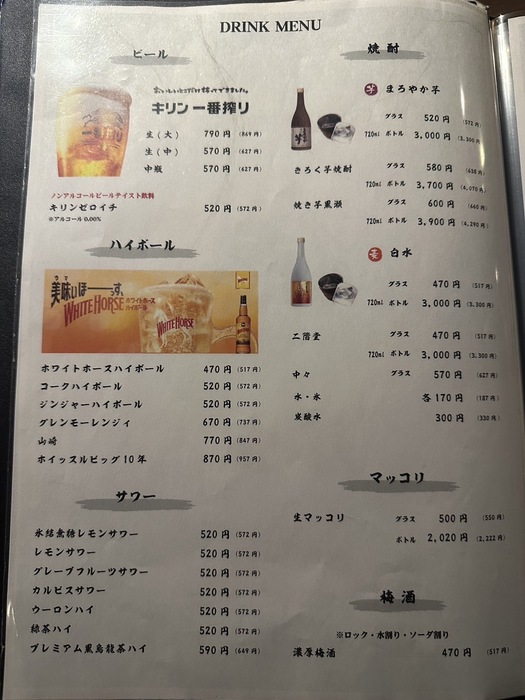 DRINK MENU
ビール
おいしいとこだけ搾ってできました。
キリン 一番搾り
一番搾り
生(大) 790円 (869円)
生(中) 570円 (627円)
中瓶 570円 (627円)
ノンアルコールビールテイスト飲料
キリンゼロイチ 520円 (572円)
※アルコール 0.00%
ハイボール
美味いほーーっす、
ウマ
WHITE HORSE
ホワイトホース
ハイボール
WHITE HORSE
ホワイトホースハイボール 470円 (517円)
コークハイボール 520円 (572円)
ジンジャーハイボール 520円 (572円)
グレンモーレンジィ 670円 (737円)
山崎 770円 (847円)
ホイッスルピッグ10年 870円 (957円)
サワー
氷結無糖レモンサワー 520円 (572円)
レモンサワー 520円 (572円)
グレープフルーツサワー 520円 (572円)
カルピスサワー 520円 (572円)
ウーロンハイ 520円 (572円)
緑茶ハイ 520円 (572円)
プレミアム黒烏龍茶ハイ 590円 (649円)
焼酎
芋 まろやか芋
グラス 520円 (572円)
720ml ボトル 3,000円 (3,300円)
きろく芋焼酎 グラス 580円 (638円)
720ml ボトル 3,700円 (4,070円)
焼き芋黒瀬 グラス 600円 (660円)
720ml ボトル 3,900円 (4,290円)
麦 白水
グラス 470円 (517円)
720ml ボトル 3,000円 (3,300円)
二階堂 グラス 470円 (517円)
720ml ボトル 3,000円 (3,300円)
中々 グラス 570円 (627円)
水・氷 各170円 (187円)
炭酸水 300円 (330円)
マッコリ
生マッコリ グラス 500円 (550円)
ボトル 2,020円 (2,222円)
梅酒
※ロック・水割り・ソーダ割り
濃厚梅酒 470円 (517円)